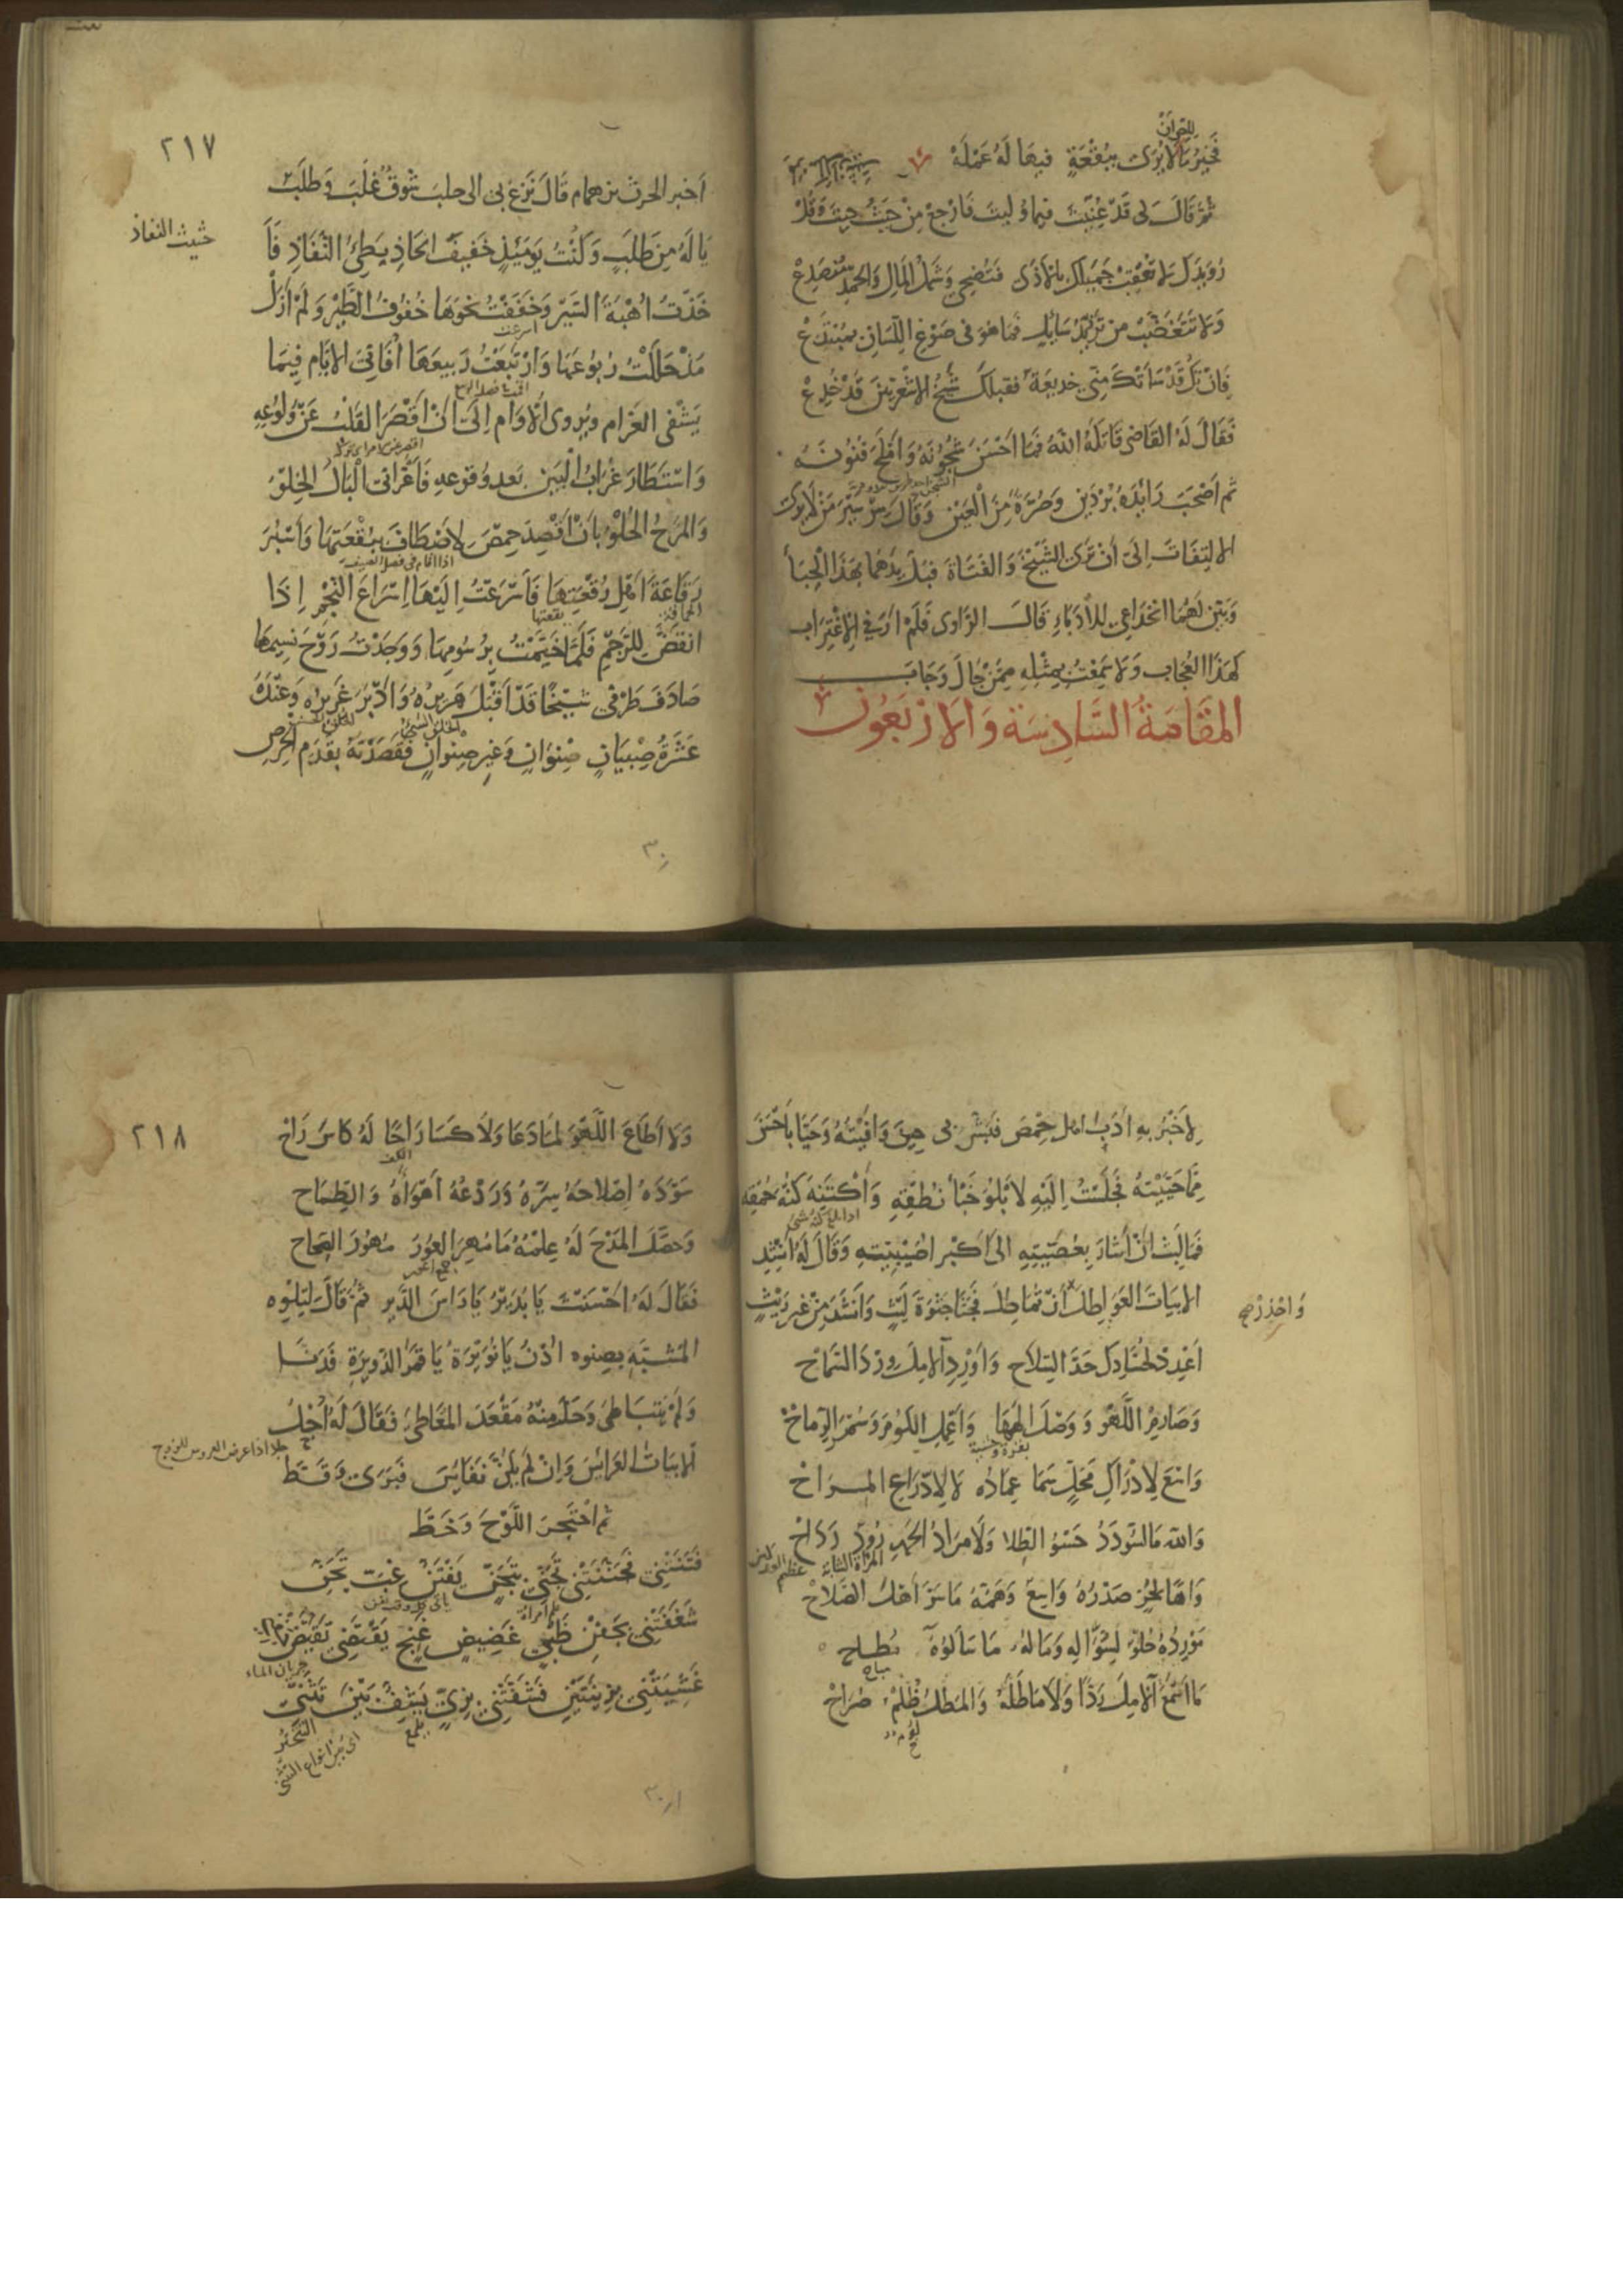 للحرّان
فَخَيْرُ مَا لَا يُرَى بِبُقْعَةٍ فِيهَا لَهُ عَمْلَهْ
ثُمَّ قَالَ لِى قَدْ عُنِيتَ فيما وُليتَ فَارْجِعْ مِنْ حَيْثُ جِيتَ وَقُلْ
رُوَيْدَكَ لَا تُعْقِبْ جَمِيلَكَ بِالْأَذَى فَتُضْحِى وَشَمْلُ المَالِ وَالحَمْدِ مُنْصَدِعْ
وَلَا تَتَغَضَّبْ مِنْ تَزَيُّدِ سَايِلٍ فَمَا هُوَ فى صَوْغِ اللِّسَانِ بِمُبْتَدِعْ
فَإِنْ تَكُ قَدْ سَاءَتْكَ مِنِّى خَدِيعَةٌ فَقَبْلَكَ شَيْخُ الأَشْعَرِيِّينَ قَدْ خُدِعْ
فَقَالَ لَهُ القَاضِى قَاتَلَهُ اللهُ فَمَا أَحْسَنَ شُجُونَهُ وَأَمْلَحَ فُنُونَهُ
ثم أَصْحَبَ رَائِدَهُ بُرْدَيْنِ وَصُرَّةً مِنَ الْعَيْنِ وَقَالَ سِرْ سَيْرَ مَنْ لَا يَرَى
الالتِفَاتَ إِلَى أَنْ تَرَى الشَّيْخَ وَالفَتَاةَ فَبُلَّ يَدَهُمَا بِهَذَا الْحِبَا
وَبَيِّنْ لَهُمَا انْخِدَاعِى لِلْأُدَبَاءِ قَالَ الرَّاوِى فَلَمْ أَرَ فِى الاِغْتِرَابِ
كَهَذَا العُجَابِ وَلَا سَمِعْتُ بِمِثْلِهِ مِمَّنْ جَالَ وَجَابَ
المَقَامَةُ السَّادِسَة وَالأرْبَعُون
٢١٧
أَخبر الحرث بن همام قَالَ نَزَعَ بى الى حلب شَوْقٌ غَلَبَ وَطَلَبٌ
يَا لَهُ مِنْ طَلَبٍ وَكُنْتُ يَوْمَئِذٍ خَفِيفَ الحَاذِ بَطِئَ النَّفَاذِ فَأَ
حَثِيث النفاذ
خَذْتُ أُهْبَةَ السَّيْرِ وَخَفَفْتُ نَحْوَهَا خُفُوفَ الطَّيْرِ وَلَمْ أَزَلْ
اسرعت
مُذْ حَلَلْتُ رُبُوعَهَا وَارْتَبَعْتُ رَبِيعَهَا أُفَانِى الأيَّام فِيمَا
يَشْفِى الغَرَام وَيُروِى الأُوَام إِلَى أَنْ أَقْصَرَ القَلْبُ عَنْ وُلُوعِهِ
وَاسْتَطَارَ غُرَابُ الْبَيْنِ بَعد وُقوعِهِ فَأَغْرَانِى الْبَالُ الخِلْوُ
وَالمَرَحُ الحُلْوُ بِأَنْ أَقْصِدَ حِمْصَ لِأَصْطَافَ بِبُقْعَتِهَا وَأَسْبُرَ
رَقَاعَةَ أَهْلِ رُقْعَتِهَا فَأَسْرَعْتُ إِلَيْهَا إِسْرَاعَ النَّجْمِ إِذَا
بقعتها
انْقَضَّ لِلرَّجْمِ فَلَمَّا خَيَّمْتُ بِرُسُومِهَا وَوَجَدْتُ رَوْحَ نَسِيمِهَا
صَادَفَ طَرْفى شَيْخًا قَدْ أَقْبَلَ هَرِيرُهُ وَأَدْبَرَ غَرِيرُه وَعِنْدَهُ
عَشَرَةُ صِبْيَانٍ صِنْوَانٍ وَغَيرِ صِنْوَانٍ فَقَصَدْتُهُ بِقَدَمِ الحِرْصِ
لِأَخْبُرَ بِهِ أُدَبَاءَ أهلِ حِمْصَ فَبَشَّ بى حِينَ وَافَيْتُهُ وَحَيَّا بِأَحْسَنَ
مِمَّا حَيَّيْتُهُ فَجَلَسْتُ إِلَيْهِ لِأَبْلُوَ جَنَا نُطْقِهِ وَأَكْتَنِهَ كُنْهَ حُمْقِهِ
فَمَا لَبِثَ أَنْ أَشَارَ بِعُصَيَّتِهِ إِلى أَكْبَرِ أُصَيْبِيَتِهِ وَقَالَ لَهُ أَنْشِدِ
الأبيَاتَ العَوَاطِلَ وَاحْذَرْ أَنْ تُمَاطِلَ فَجَثَا جَثْوَةَ لَيْثٍ وَأَنْشَدَ مِنْ غير رَيْثٍ
أَعْدِدْ لِحُسَّادِكَ حَدَّ السِّلَاحِ وَأَوْرِدِ الآمِلَ وِرْدَ السَّمَاحْ
وَصَارِمِ اللَّهْوَ وَوَصْلَ المَهَا وَأَعْمِلِ الكُومَ وَسُمْرَ الرِّمَاحْ
وَاسْعَ لِإِدْرَاكِ مَحَلٍّ سَمَا عِمَادُه لَا لِادِّرَاعِ المِرَاحْ
وَالله مَا السُّؤدَدُ حَسْوُ الطِّلا وَلَا مَرَادُ الحَمْدِ رُودٌ رَدَاحْ
المرأة الشابة
وَاهًا لِحُرٍّ صَدْرُهُ وَاسِعٌ وَهَمُّهُ مَا سَرَّ أَهْلَ الصَّلَاحْ
مَوْرِدُهُ حُلْوٌ لِسُؤَّالِهِ وَمَالُهُ مَا سَأَلُوهُ مُطَاحْ
مَا أَسْمَعَ الآمِلَ رَدًّا وَلَا مَاطَلَهُ وَالمَطْلُ ظُلْمٌ صُرَاحْ
٢١٨
وَلَا أَطَاعَ اللَّهْوَ لَمَّا دَعَا وَلَا كَسَا رَاحًا لَهُ كَاسَ رَاحْ
الكف
سَوَّدَهُ إِصْلَاحُهُ سِرَّهُ وَرَدْعُهُ أَهْوَاءَهُ وَالطِّمَاح
وَحَصَّلَ المَدْحَ لَهُ عِلْمُهُ مَا مُهِرَ العُورُ مُهُورَ الصِّحَاح
فَقَالَ لَهُ أَحْسَنْتَ يَا بُدَيْرُ يَا رَاسَ الدَّيْرِ ثُمَّ قَالَ لِتِلْوِهِ
المُشْتَبِهِ بِصِنْوِه ادْنُ يَا نُوَيْرَةُ يَا قَمَرَ الدُّوَيْرَةِ فَدَنَا
وَلَمْ يَتَبَاطى وَحَلَّ مِنْهُ مَقْعَدَ المُعَاطِى فَقَالَ لَهُ اجْلُ
جلا اذا عرض العروس للزوج
الأَبيَاتَ العَرَائِسَ وَإِنْ لَمْ يَكُنَّ نَفَائِسَ فَبَرَى القَلَمَ وَقَطَّ
ثم احْتَجَرَ اللَّوْحَ وَخَطَّ
فَتَنَتْنِى فَجَنَّنَتْنِى تَجَنِّى بِتَجَنٍّ يَفْتَنُّ غِبَّ تَجَنّ
شَغَفَتْنِى بِجَفْنِ ظَبْىٍ غَضِيضٍ غَنِجٍ يَقْتَضِى تَغَيُّضَ جَفْنِى
جريان الماء
غَشِيَتْنِى بِزِينَتَيْنِ فَشَفَّتْنِى بِزِىٍّ يَشِفُّ بَيْنَ تَثَنّ
يلمع
التبختر
اى بين انواع التثنى